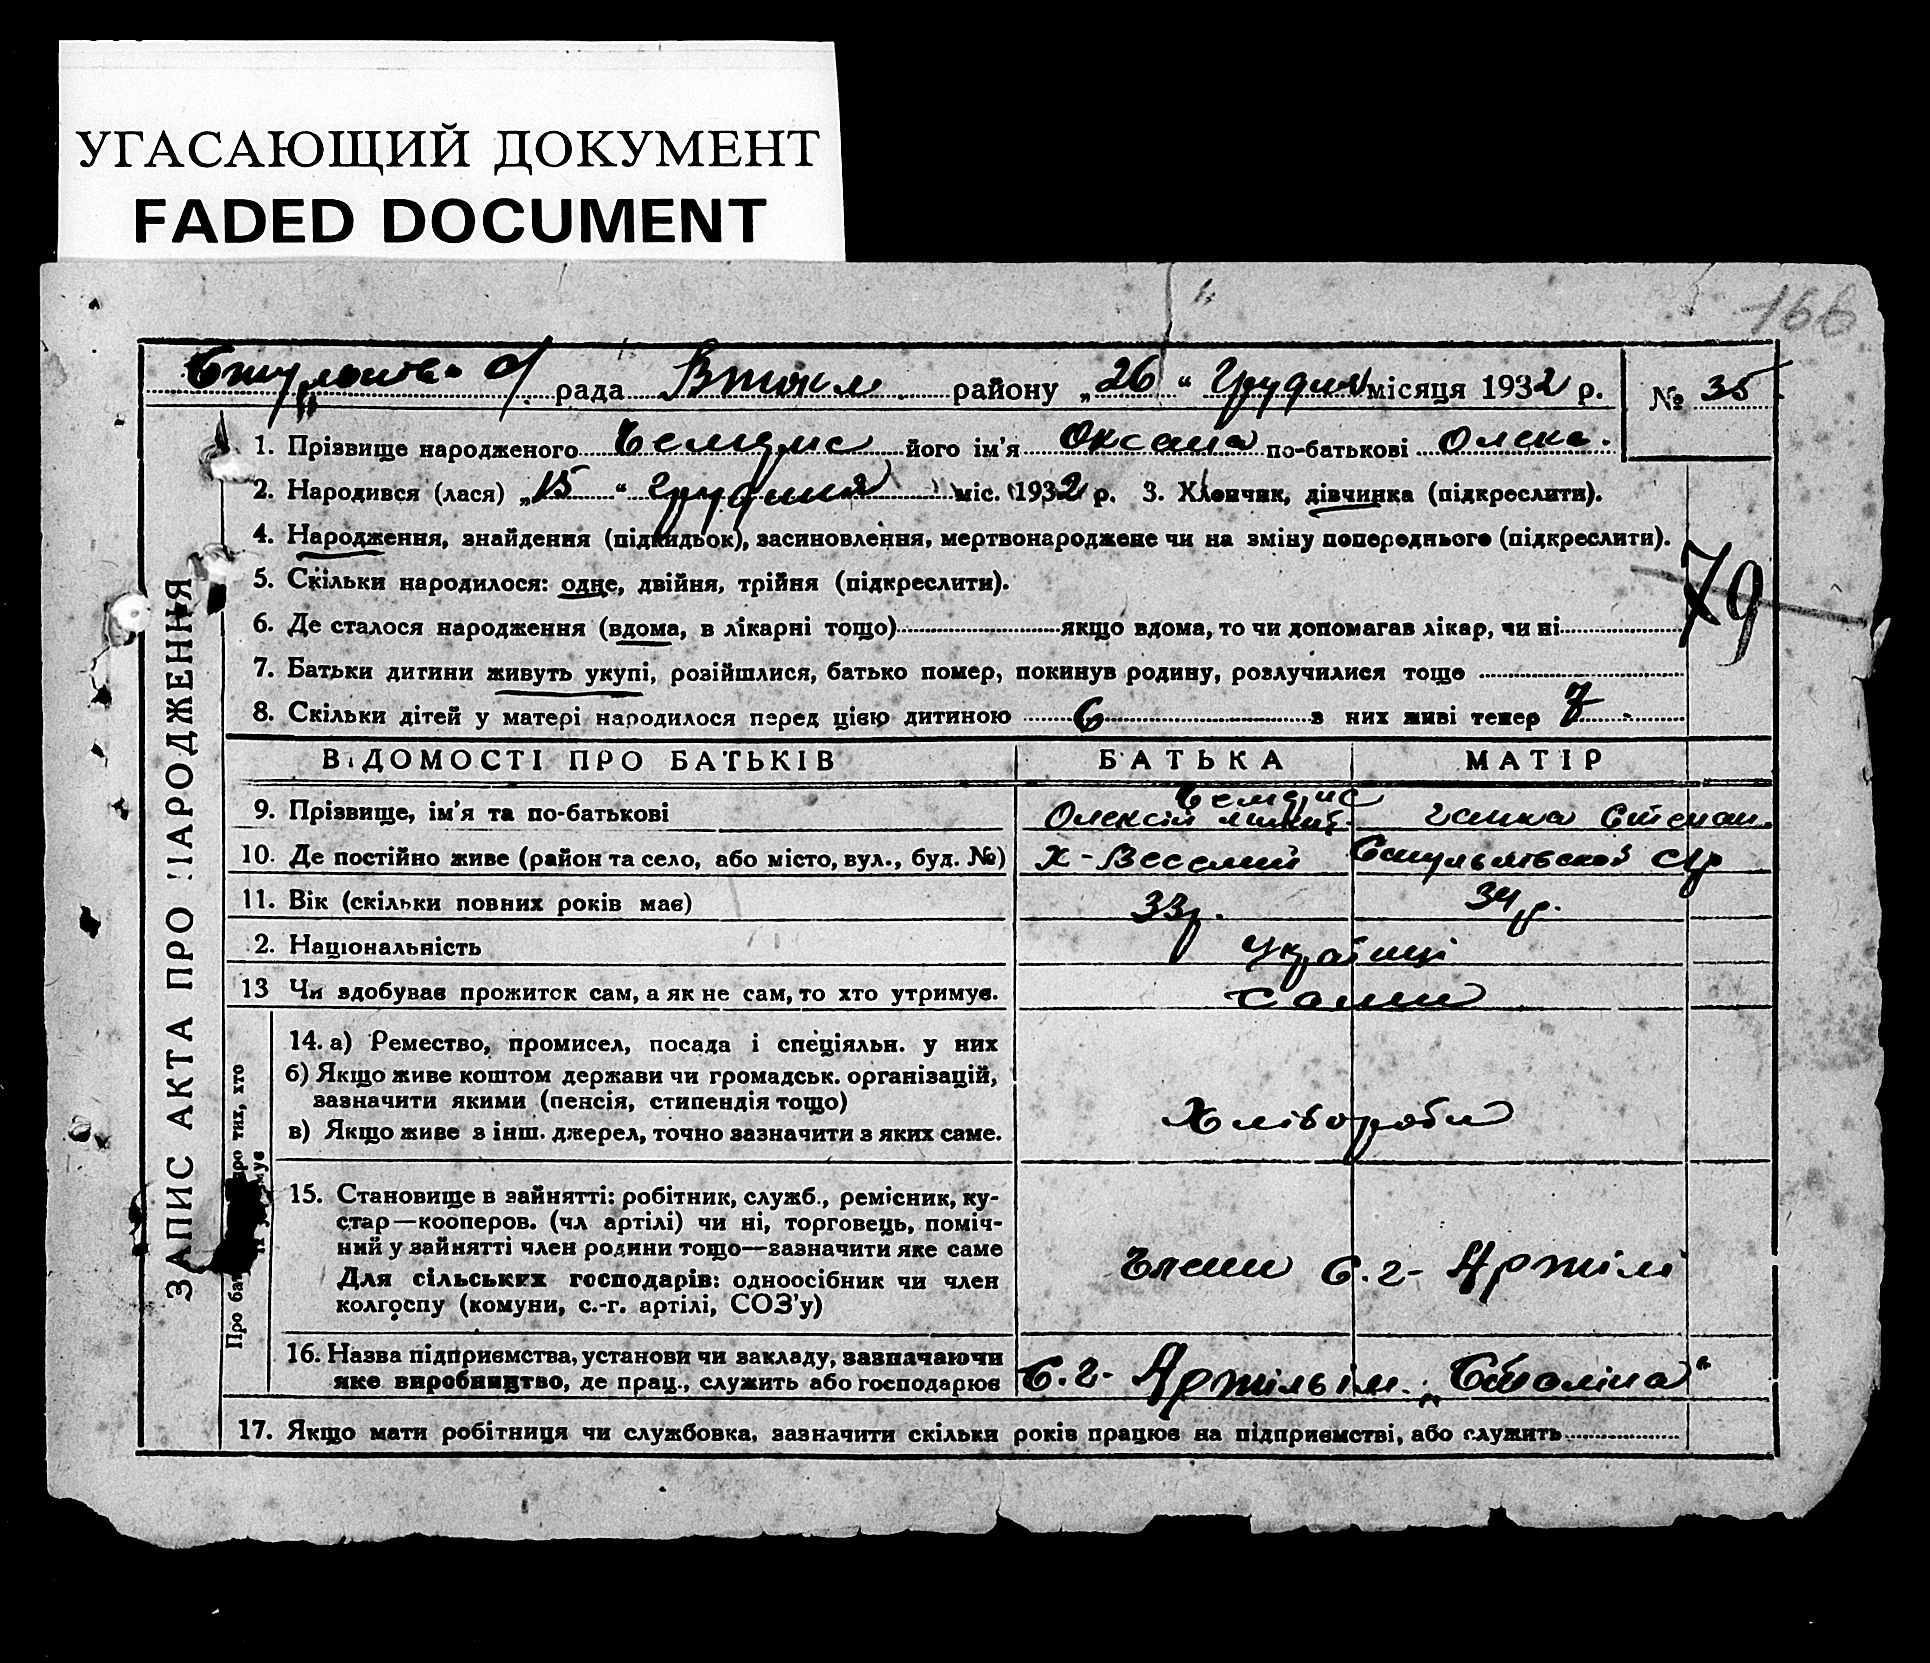 УГАСАЮЩИЙ ДОКУМЕНТ
FADED DOCUMENT
166
рада района „26“ Грудня місяця 1932 р.
№ 35
1. Прізвище народженого його ім'я Оксана по-батькові Олекс.
2. Народився (лася) „15“ грудння міс. 1932 р. 3. Хлопчик, дівчинка (підкреслити).
4. Народження, знайдення (підкидьок), засиновлення, мертвонароджене чи на зміну попереднього (підкреслити).
5. Скільки народилося: одне, двійня, трійня (підкреслити).
79
6. Де сталося народження (вдома, в лікарні тощо) якщо вдома, то чи допомагав лікар, чи ні
7. Батьки дитини живуть укупі, розійшлися, батько помер, покинув родину, розлучилися тоще
8. Скільки дітей у матері народилося перед цією дитиною 6 з них живі тепер 7
ЗАПИС АКТА ПРО НАРОДЖЕННЯ
ВІДОМОСТІ ПРО БАТЬКІВ БАТЬКА МАТІР
9. Прізвище, ім'я та по-батькові Олексій Ганна Степан.
10. Де постійно живе (район та село, або місто, вул., буд. №) х-Веселий
11. Вік (скільки повних років має) 33р. 34р.
2. Національність Українці
13 Чи здобуває прожиток сам, а як не сам, то хто утримує. Самии
про тих, хто
Про бат
14. а) Ремество, промисел, посада і спеціяльн. у них
б) Якщо живе коштом держави чи громадськ. організацій,
зазначити якими (пенсія, стипендія тощо)
в) Якщо живе з інш. джерел, точно зазначити з яких саме.
Хлібороби
15. Становище в зайнятті: робітник, служб., ремісник, ку-
стар—кооперов. (чл артілі) чи ні, торговець, поміч-
ний у зайнятті член родини тощо—зазначити яке саме
Для сільських господарів: одноосібник чи член
колгоспу (комуни, с.-г. артілі, СОЗ'у)
Члени С.г- Артілі
16. Назва підприємства, установи чи закладу, зазначаючи
яке виробництво, де прац., служить або господарює
С.г- Артільім. „Сталіна“
17. Якщо мати робітниця чи службовка, зазначити скільки років працює на підприємстві, або служить